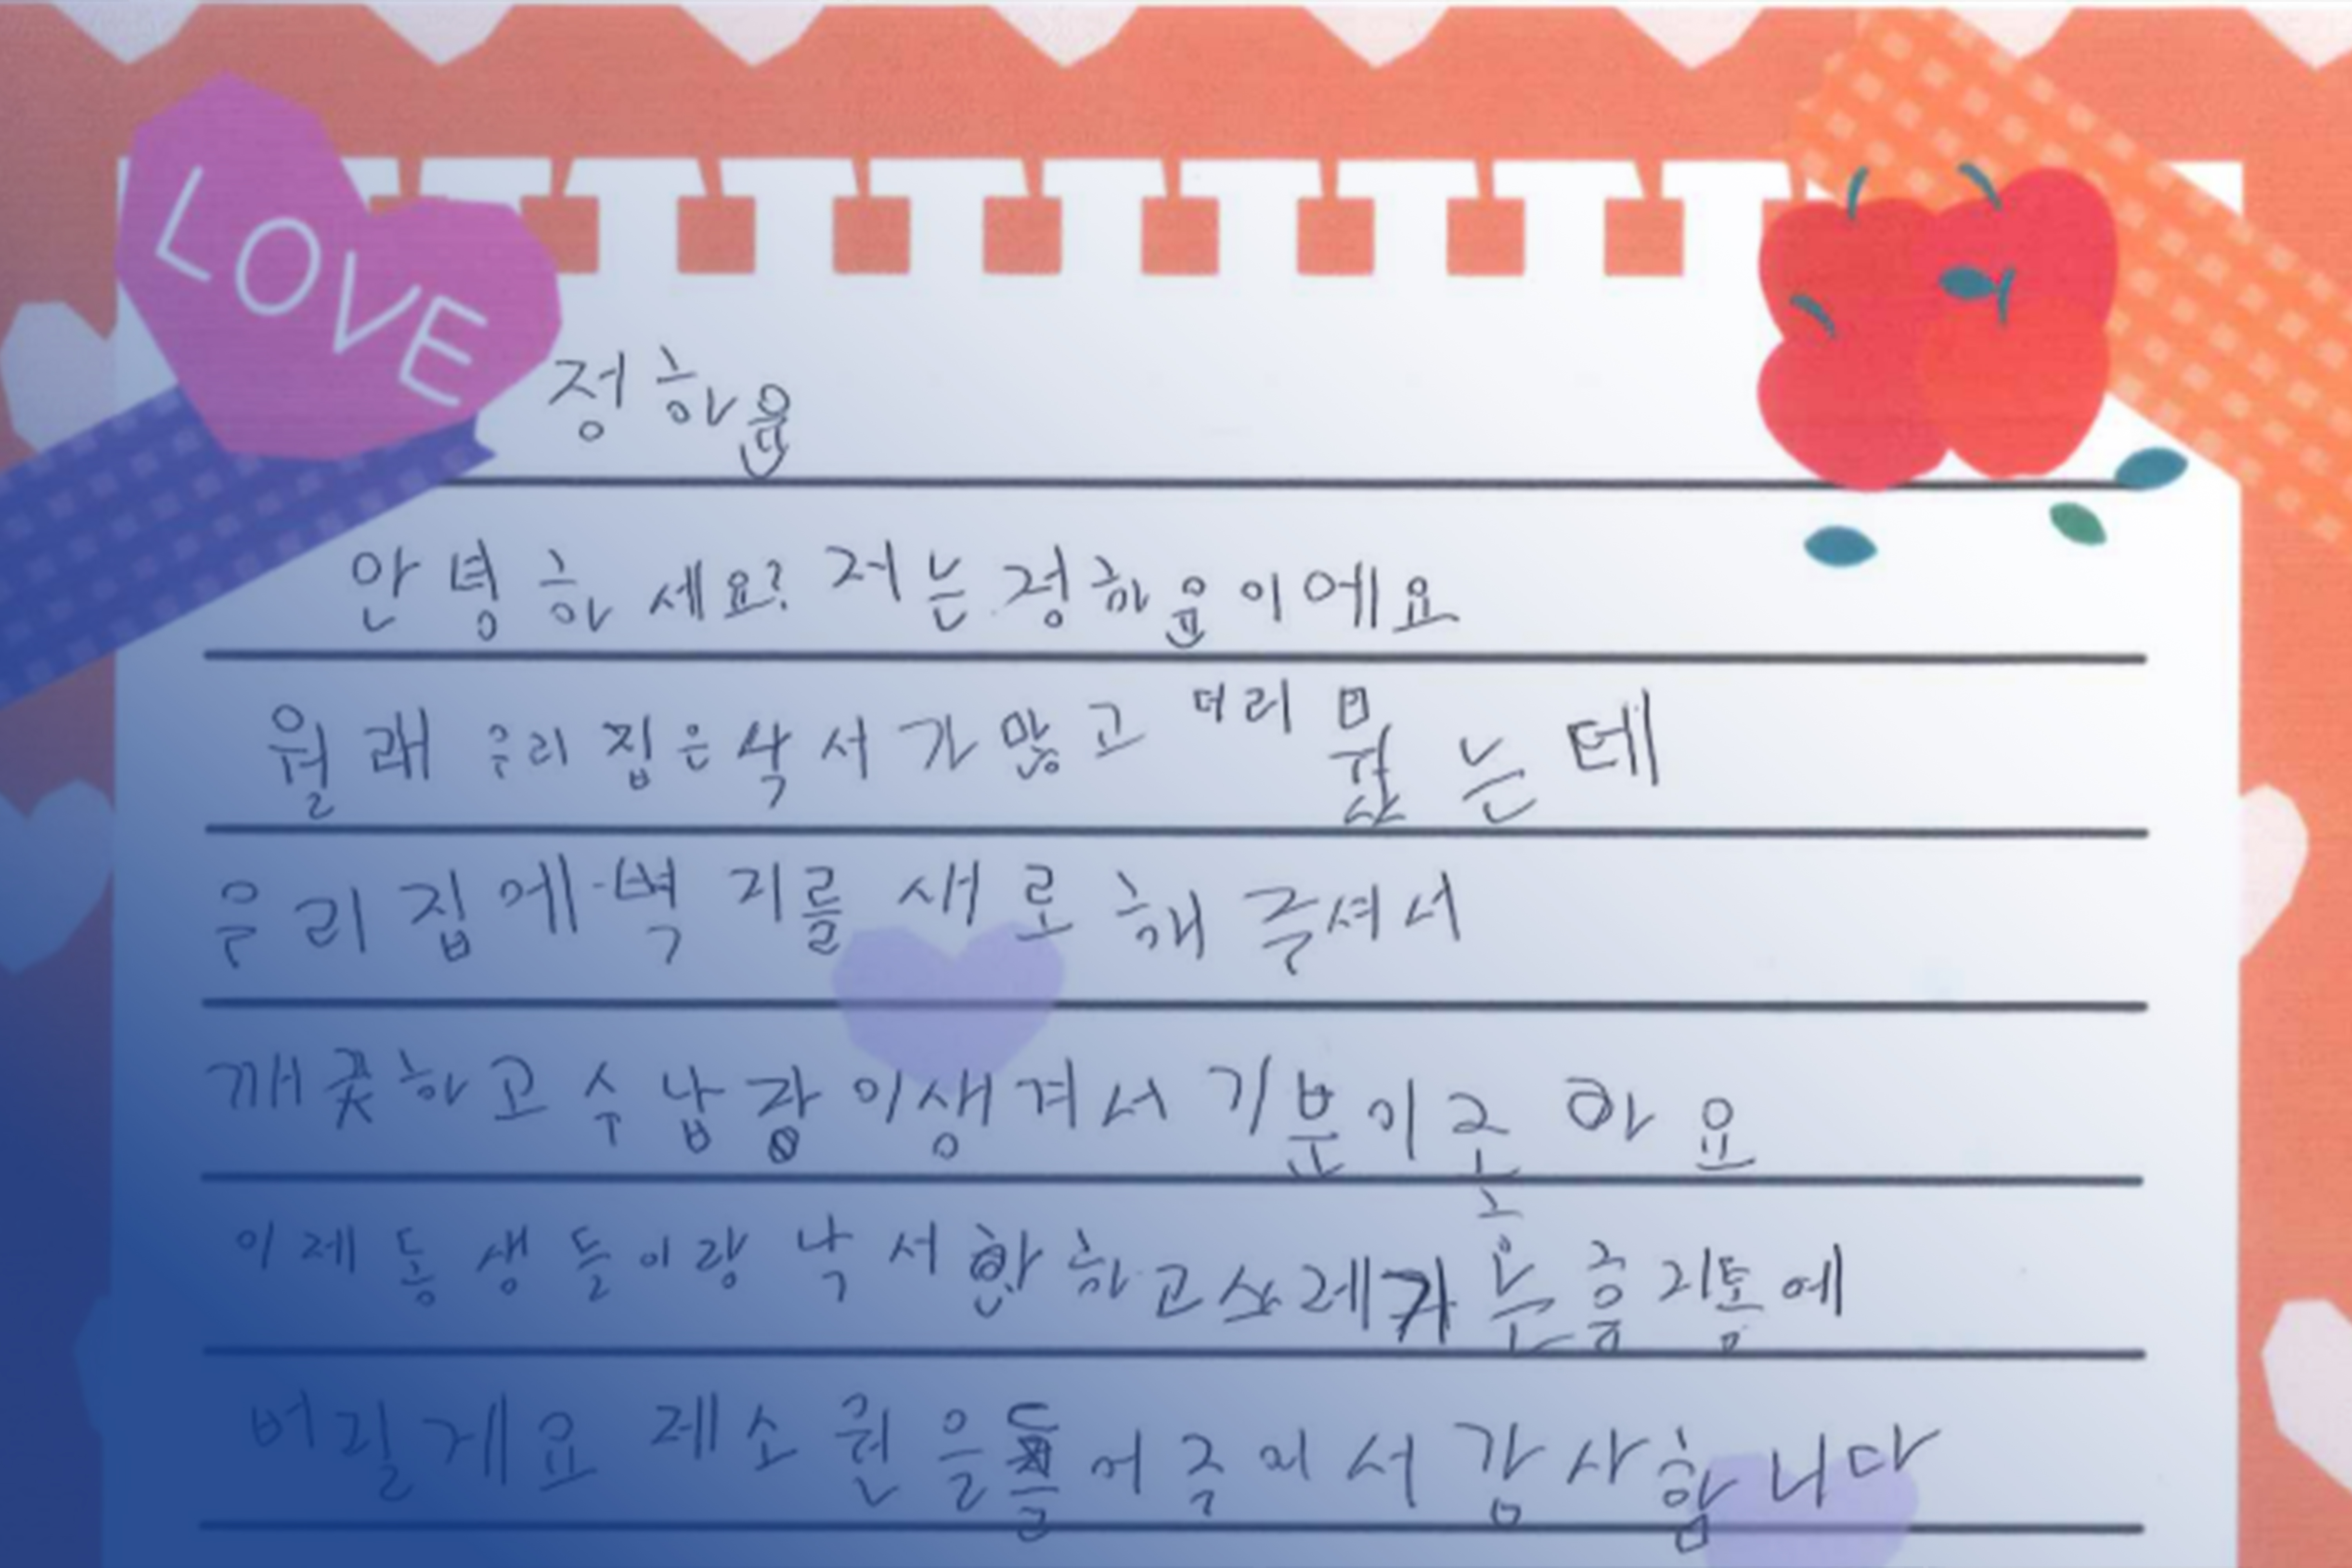 LOVE
정하윤
안녕하세요? 저는 정하윤이에요
월래 우리 집은 낙서가 많고 더러 웠는데
우리 집에 벽지를 새로 해주셔서
깨끗하고 수납장이 생겨서 기분이 조아요
이제 동생들이랑 낙서 안하고 쓰레기는 휴지통에
버릴게요 제 소원을 들어주어서 감사합니다